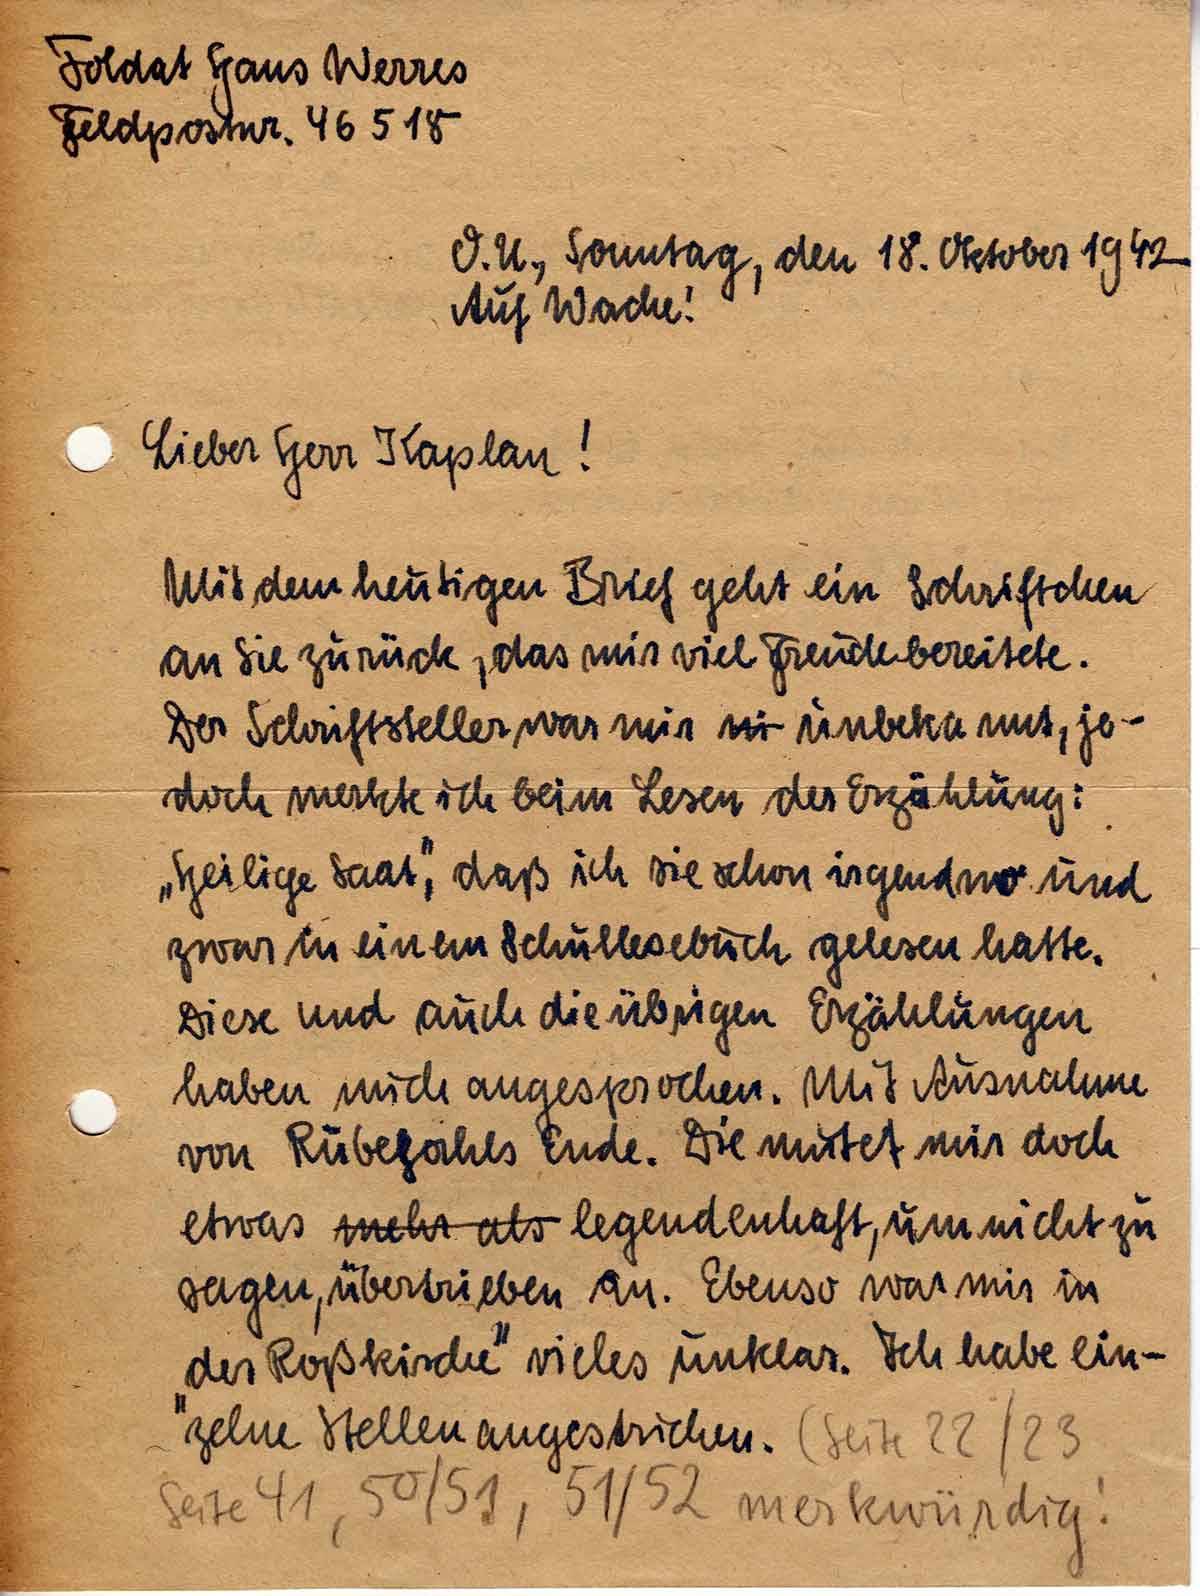 Soldat Hans Werres
Feldpostnr. 46 518
O.U., Sonntag, den 18. Oktober 1942
Auf Wache!
Lieber Herr Kaplan!
Mit dem heutigen Brief geht ein Schriftchen
an Sie zurück, das mir viel Freude bereitete.
Der Schriftsteller war mir ni unbekannt, je-
doch merkte ich beim Lesen der Erzählung:
„Heilige Saat", daß ich sie schon irgendwo und
zwar in einem Schullesebuch gelesen hatte.
Diese und auch die übrigen Erzählungen
haben mich angesprochen. Mit Ausnahme
von Rübezahls Ende. Die mutet mir doch
etwas mehr als legendenhaft, um nicht zu
sagen, übertrieben an. Ebenso war mir in
„der Roßkirche" vieles unklar. Ich habe ein-
zelne Stellen angestrichen. (Seite 22/23
Seite 41, 50/51, 51/52 merkwürdig!